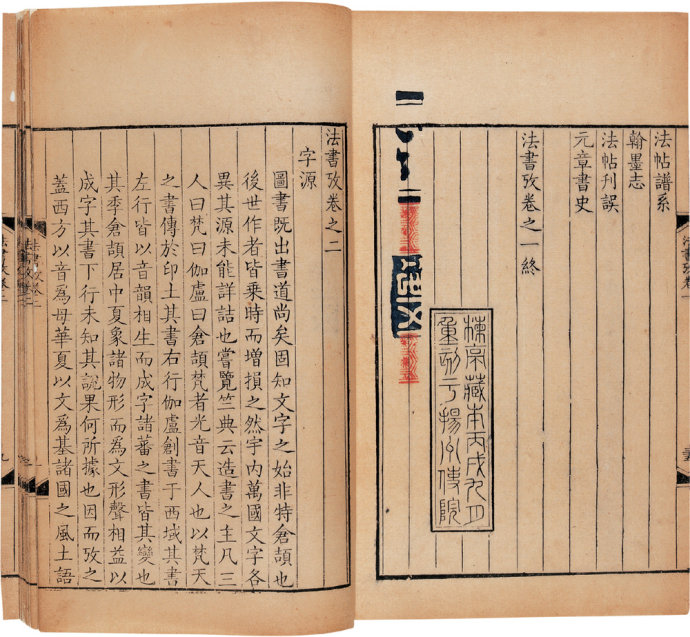 法帖譜系
翰墨志
法帖刊誤
元章書史
法書攷卷之一終
楝亭藏本丙戌九月
重刻于揚州使院
法書攷卷之二
字源
圖書既出書道尚矣固知文字之始非特倉頡也
後世作者皆乘時而增損之然宇内萬國文字各
異其源未能詳詰也嘗覽竺典云造書之主凡三
人曰梵曰伽盧曰倉頡梵者光音天人也以梵天
之書傳於印土其書右行伽盧創書于西域其書
左行皆以音韻相生而成字諸蕃之書皆其變也
其季倉頡居中夏象諸物形而爲文形聲相益以
成字其書下行未知其説果何所據也因而攷之
蓋西方以音爲母華夏以文爲基諸國之風土語